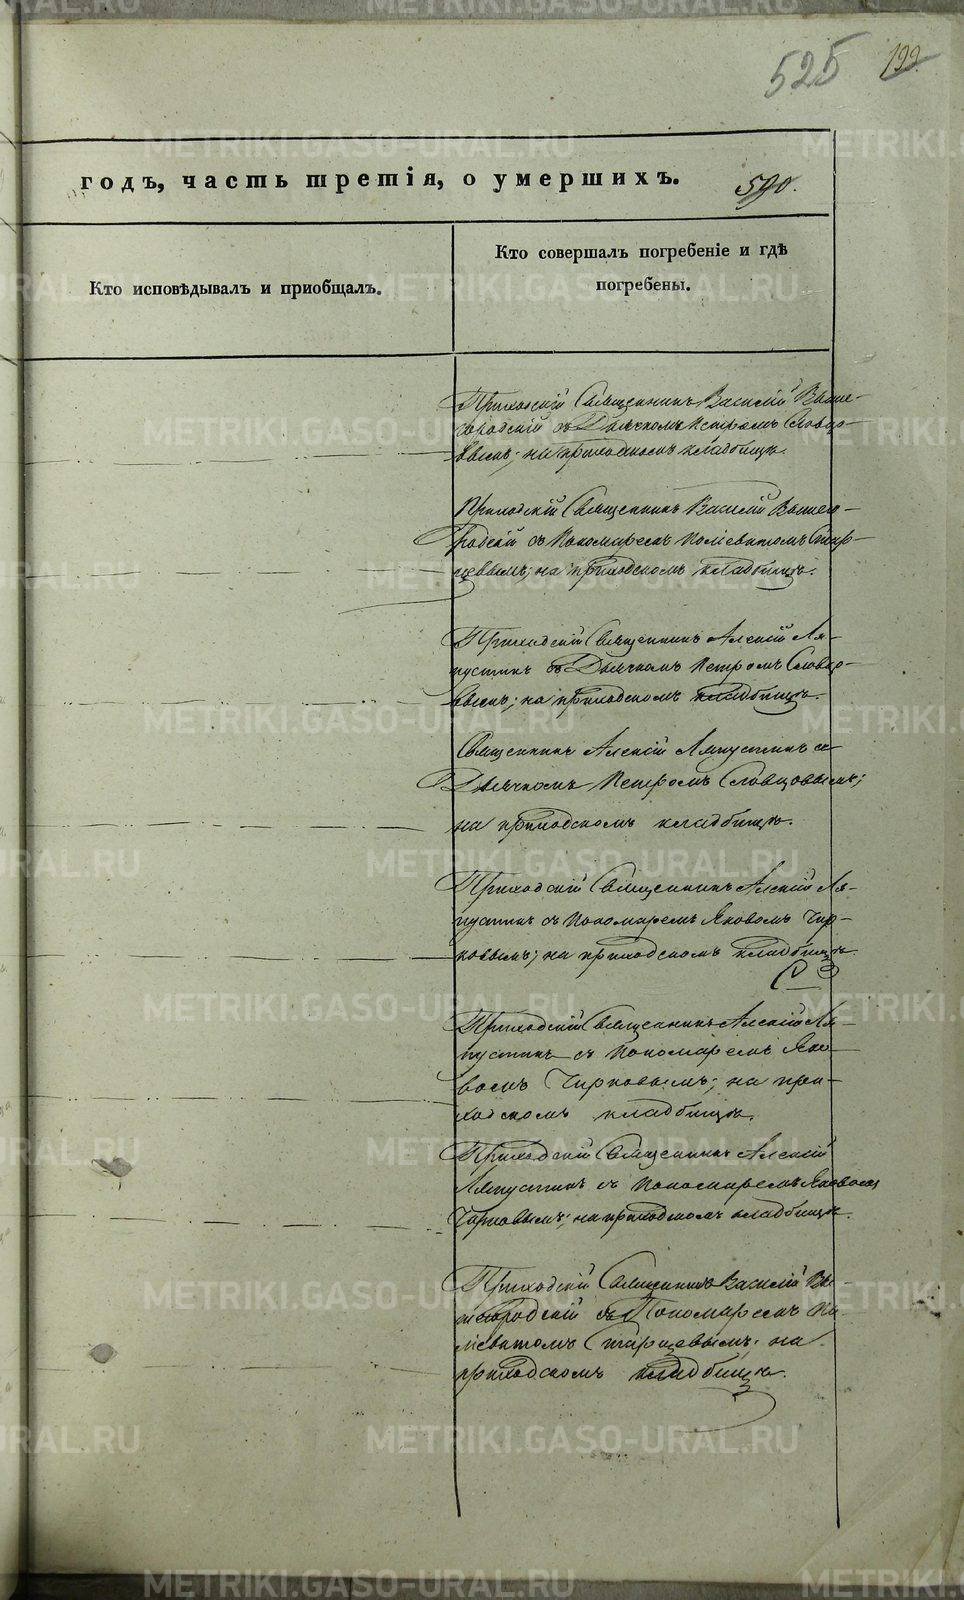 525 122
годъ, часть третія, о умершихъ. 590.
Кто исповѣдывалъ и пріобщалъ.
Кто совершалъ погребеніе и гдѣ
погребены.
Приходскій Священникъ Василій Выше-
городскій съ Дьячкомъ Петромъ Словцо-
вымъ; на приходскомъ кладбищѣ.
Приходскій Священникъ Василій Вышего-
родскій съ Пономаремъ Стар-
цевымъ; на приходскомъ кладбищѣ.
Приходскій Священникъ Алексій Ля-
пустинъ съ Дьячкомъ Петромъ Словцо-
вымъ; на приходскомъ кладбищѣ.
Священникъ Алексій Ляпустинъ съ
Дьячкомъ Петромъ Словцовымъ;
на приходскомъ кладбищѣ.
Приходскій Священникъ Алексій Ля-
пустинъ съ Пономаремъ Яковомъ Чир-
ковымъ; на приходскомъ кладбищѣ.
Приходскій Священникъ Алексій Ля-
пустинъ съ Пономаремъ Яко-
вомъ Чирковымъ; на при-
ходскомъ кладбищѣ.
Приходскій Священникъ Алексій
Ляпустинъ съ Пономаремъ Яковомъ
Чирковымъ; на приходскомъ кладбищѣ.
Приходскій Священникъ Василій Вы-
шегородскій съ Пономаремъ
Старцевымъ; на
приходскомъ кладбищѣ.
METRIKI.GASO-URAL.RU